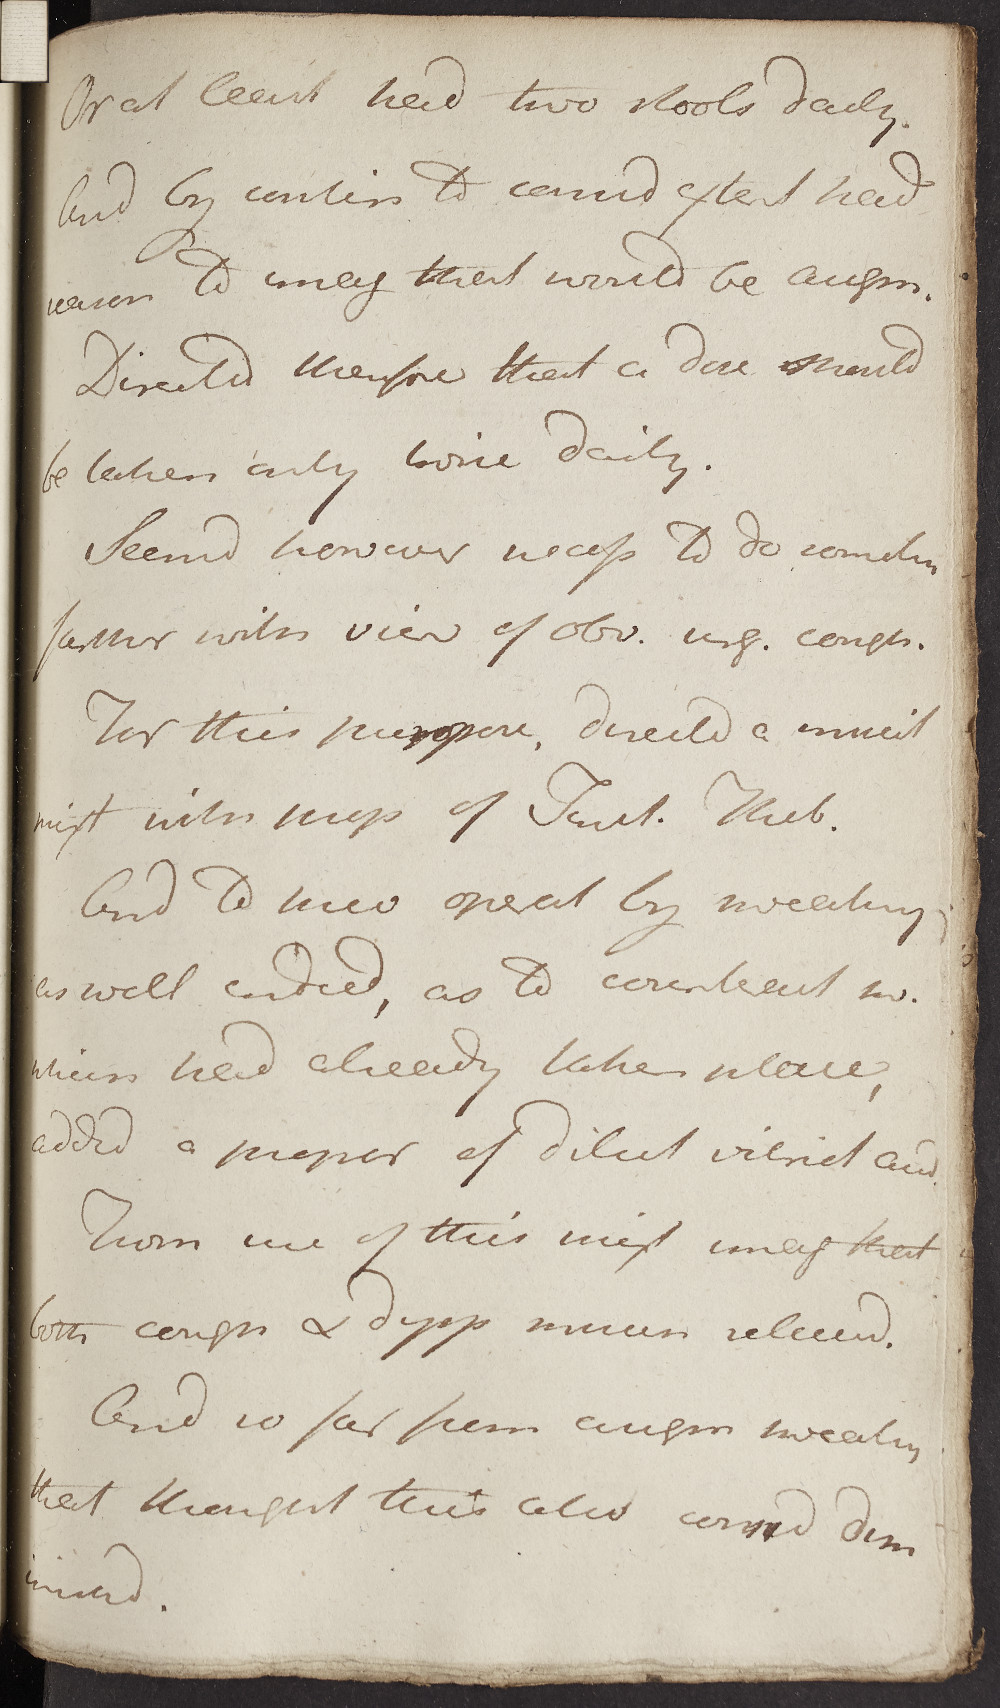 Or at least had two stools daily.
And by contin to consid extent had
reason to imag that would be augm.
Directed therefore that a dose should
be taken only twice daily.
Seemd however necess to do somethin
farther with view of obv. urg. cough.
For this purpose, directd a mucil
mixt with prep of Tinct. Theb.
And to prev operat by sweating
as well indeed, as to counteract sw.
which had already taken place,
added a propor of dilut vitriol acid.
From use of this mixt imag that
both cough & dysp much relievd.
And so far from augm sweatin
that thought this also consid dim
inishd.